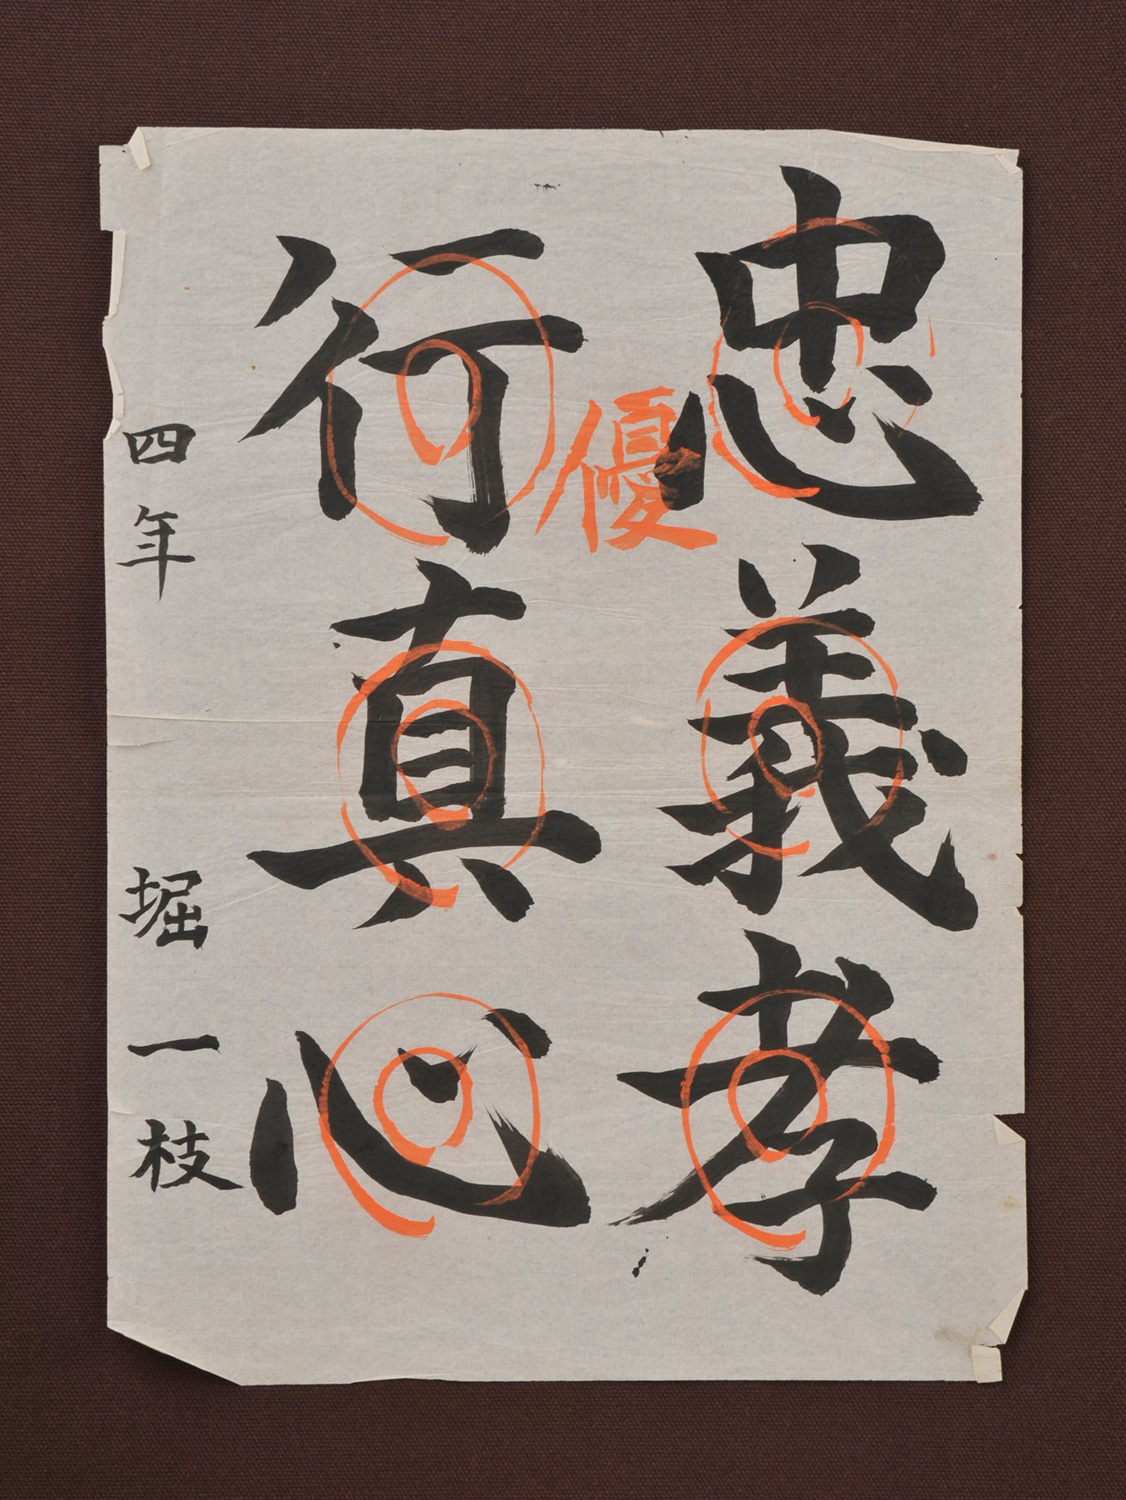 忠義孝
優
行真心
四年 堀一枝